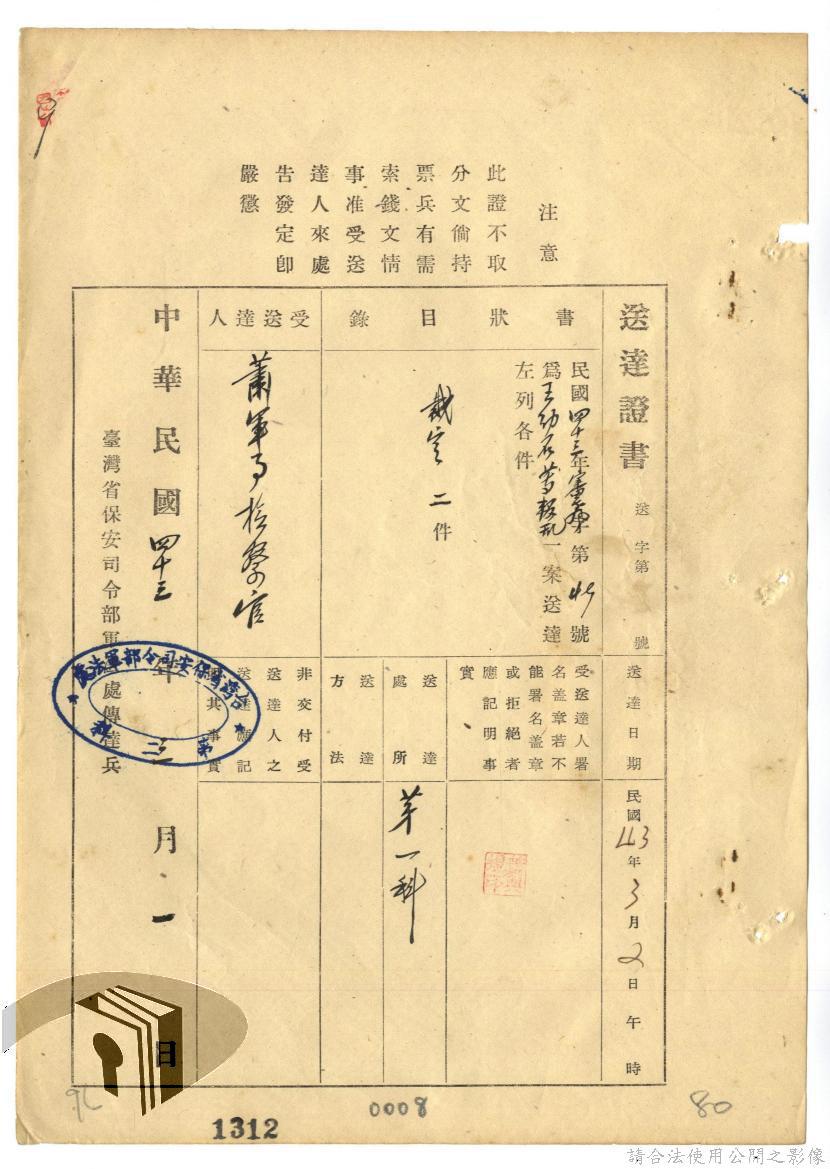 注意
此證不取
分文倘持
票兵有需
索錢文情
事准受送
達人來處
告發定卽
嚴懲
送達證書
送字第
號
送達日期
民國43年3月2日午時
書狀目錄
民國四十三年審第號
為王幼石等叛亂一案送達
左列各件
裁定二件
受送達人署
名蓋章若不
能署名蓋章
或拒絕者
應記明事
實
送達處所
第一科
送達方法
受送達人
蕭軍事檢察官
非交付受
送達人之
送達應記
其事實
中華民國四十三年三月一日
臺灣省保安司令部軍法處傳達兵
台灣省保安司令部軍法處
0008
80
1312
請合法使用公開之影像